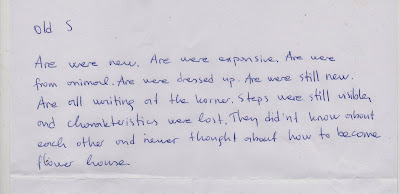 Old S
Are were new. Are were expansive. Are were
from animal. Are were dressed up. Are were still new.
Are all writing at the korner. Steps were still visible,
and charakteristics were lost. They did'nt know about
each other and newer thought about how to become
flower house.